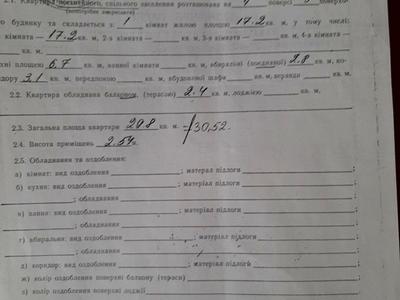 2.1. Квартира посімейного, спільного заселення розташована на 4 поверсі 5
го будинку та складається з 1 кімнат жилою площею 17.2 кв. м, у тому числі:
кімната — 17.2 кв. м, 2-а кімната — кв. м, 3-я кімната — кв. м, 4-а кімната —
кв. м,
хні площею 6.7 кв. м, ванної кімнати кв. м, вбиральні (поєднаної) 2.8 кв. м, ко-
ридору 3.1 кв. м, передпокою кв. м, вбудованої шафи кв. м, веранди кв. м,
кв. м,
2.2. Квартира обладнана балконом, (терасою) 2.4 кв. м, лоджією кв. м,
2.3. Загальна площа квартири 29.8 кв. м. =30,52.
2.4. Висота приміщень 2.54
2.5. Обладнання та оздоблення:
а) кімнат: вид оздоблення ; матеріал підлоги ;
б) кухня: вид оздоблення ; матеріал підлоги
; обладнання ;
в) ванни: вид оздоблення ; матеріал підлоги
; обладнання ;
г) вбиральня: вид оздоблення ; матеріал підлоги
; обладнання ;
д) коридор: вид оздоблення ; матеріал підлоги ;
ж) колір оздоблення поверхні балкону (тераси) ;
з) колір оздоблення поверхні лоджії ;